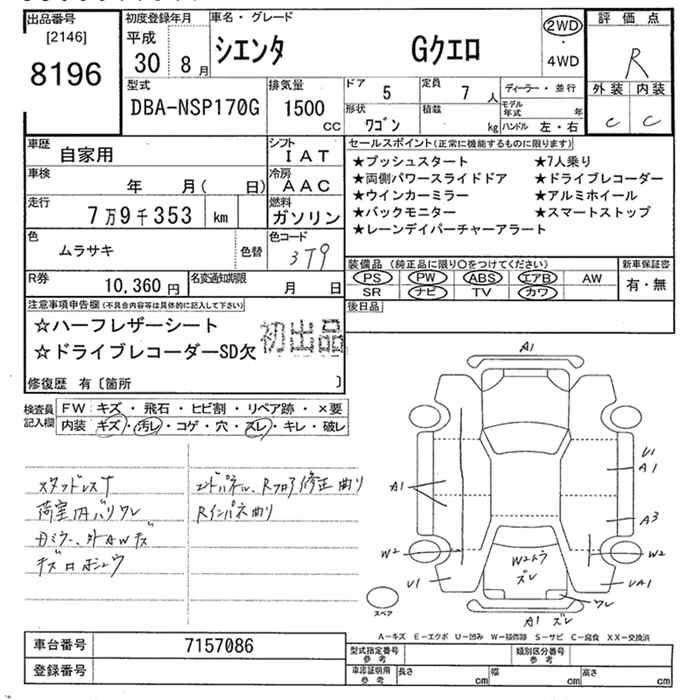 出品番号
[2146]
8196
初度登録年月
平成
30年 8月
車名・グレード
シエンタ Gクエロ
2WD
・
4WD
評価点
R
外装 内装
C C
型式
DBA-NSP170G
排気量
1500
CC
ドア
5
定員
7人
形状
ワゴン
積載
kg
ディーラー・並行
モデル年式 年
ハンドル 左・右
車歴
自家用
シフト
IAT
車検
年 月( 日)
冷房
AAC
走行
7万9千353 km
燃料
ガソリン
色
ムラサキ
色替
色コード
3T9
R券
10,360円
名変通知期限
月 日
セールスポイント(正常に機能するものに限ります)
★プッシュスタート ★7人乗り
★両側パワースライドドア ★ドライブレコーダー
★ウインカーミラー ★アルミホイール
★バックモニター ★スマートストップ
★レーンデイパーチャーアラート
装備品 (純正品に限り〇をつけてください)
PS PW ABS エアB AW
SR ナビ TV カワ
新車保証書
有・無
後日品
注意事項申告欄(不具合内容等は具体的に記入して下さい)
☆ハーフレザーシート
☆ドライブレコーダーSD欠
初出品
修復歴 有〔箇所 〕
検査員記入欄
FW キズ・飛石・ヒビ割・リペア跡・×要
内装 キズ・汚レ・コゲ・穴・ズレ・キレ・破レ
スタッドレス
荷室内バリワレ
エンドパネル、Rフロア修正曲り
Rインパネ曲り
A1
U1
A1
A1
A3
W2
W2
W2トラ
ズレ
U1
UA1
ワレ
A1 ズレ
スペア
A-キズ E-エクボ U-凹み W-補修跡 S-サビ C-腐食 XX-交換済
車台番号
7157086
登録番号
型式指定番号
参考
類別区分番号
参考
車庫証明用
参考
長さ cm 幅 cm 高さ cm